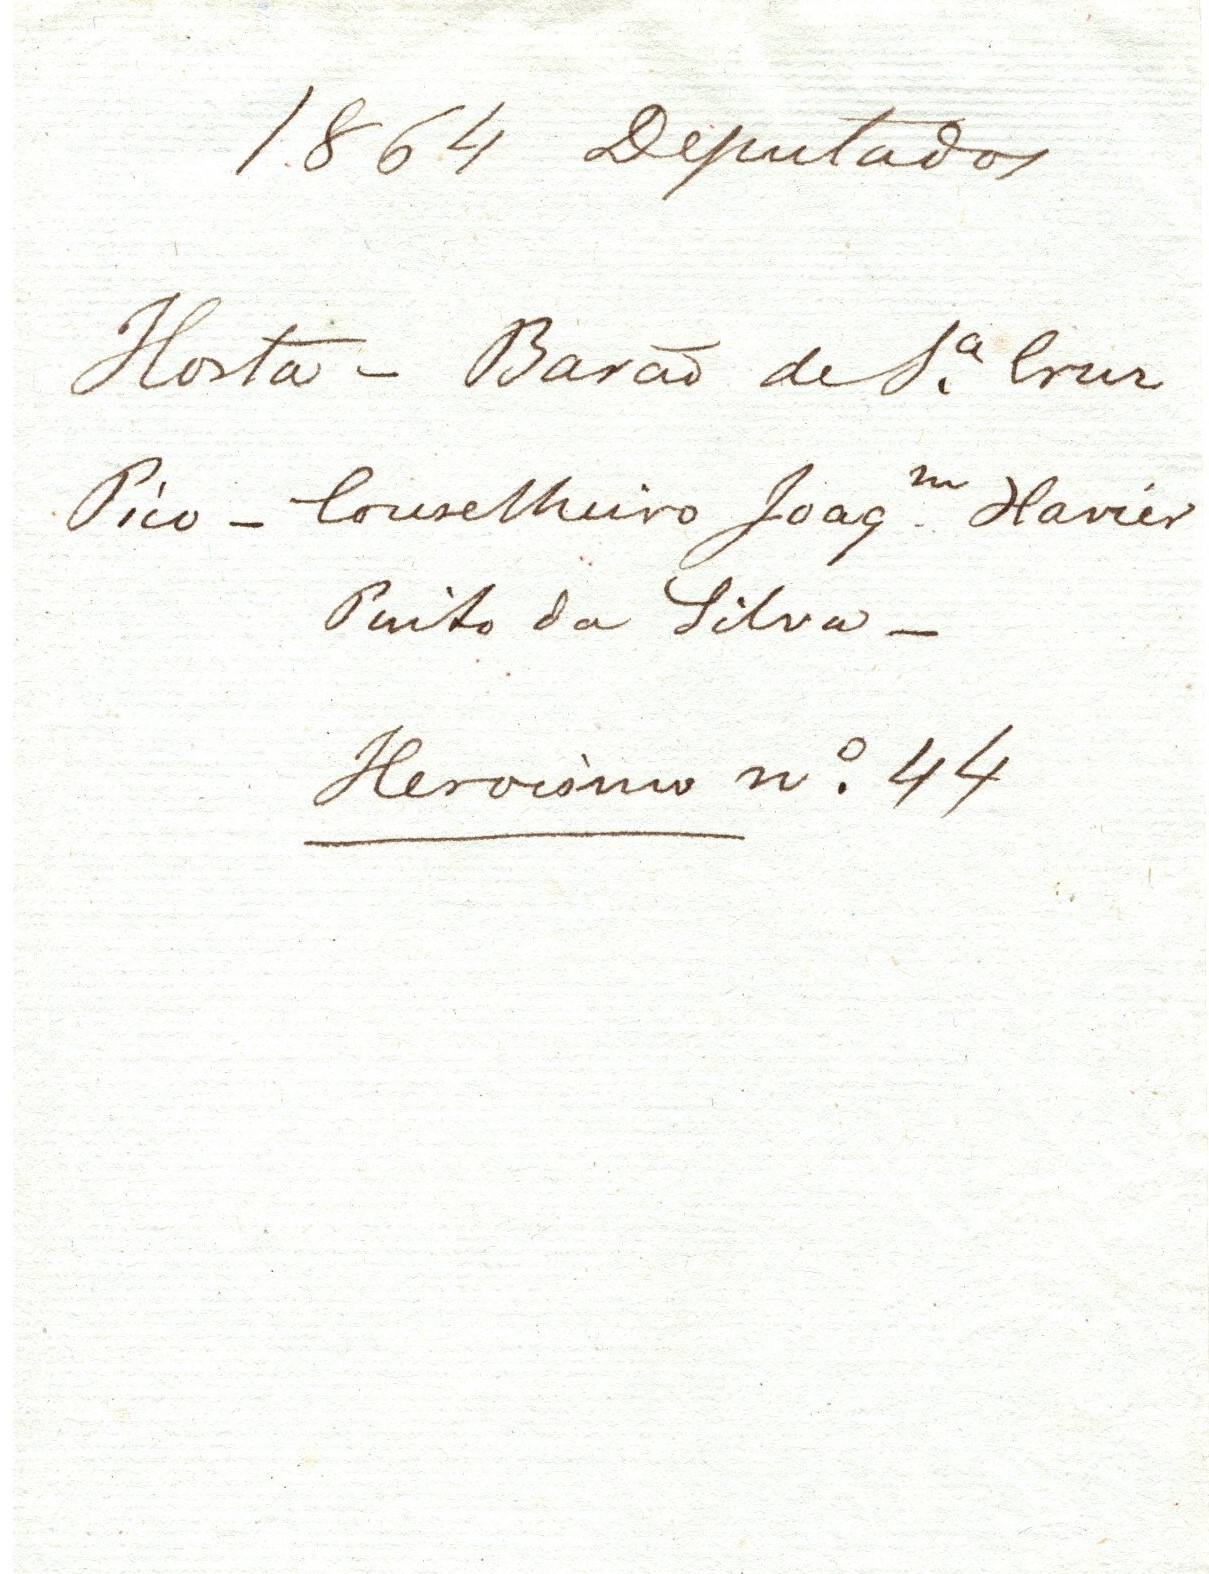 1864 Deputados
Horta - Barão de S.ª Cruz
Pico - Conselheiro Joaq.m Xavier
Pinto da Silva -
Heroismo n.º 44